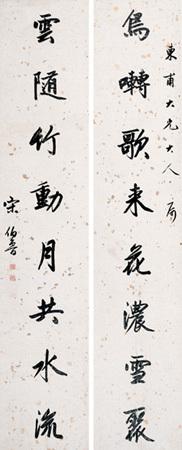 東甫大兄大人属
鳥囀歌来花濃雪聚
雲随竹動月共水流
宋伯魯